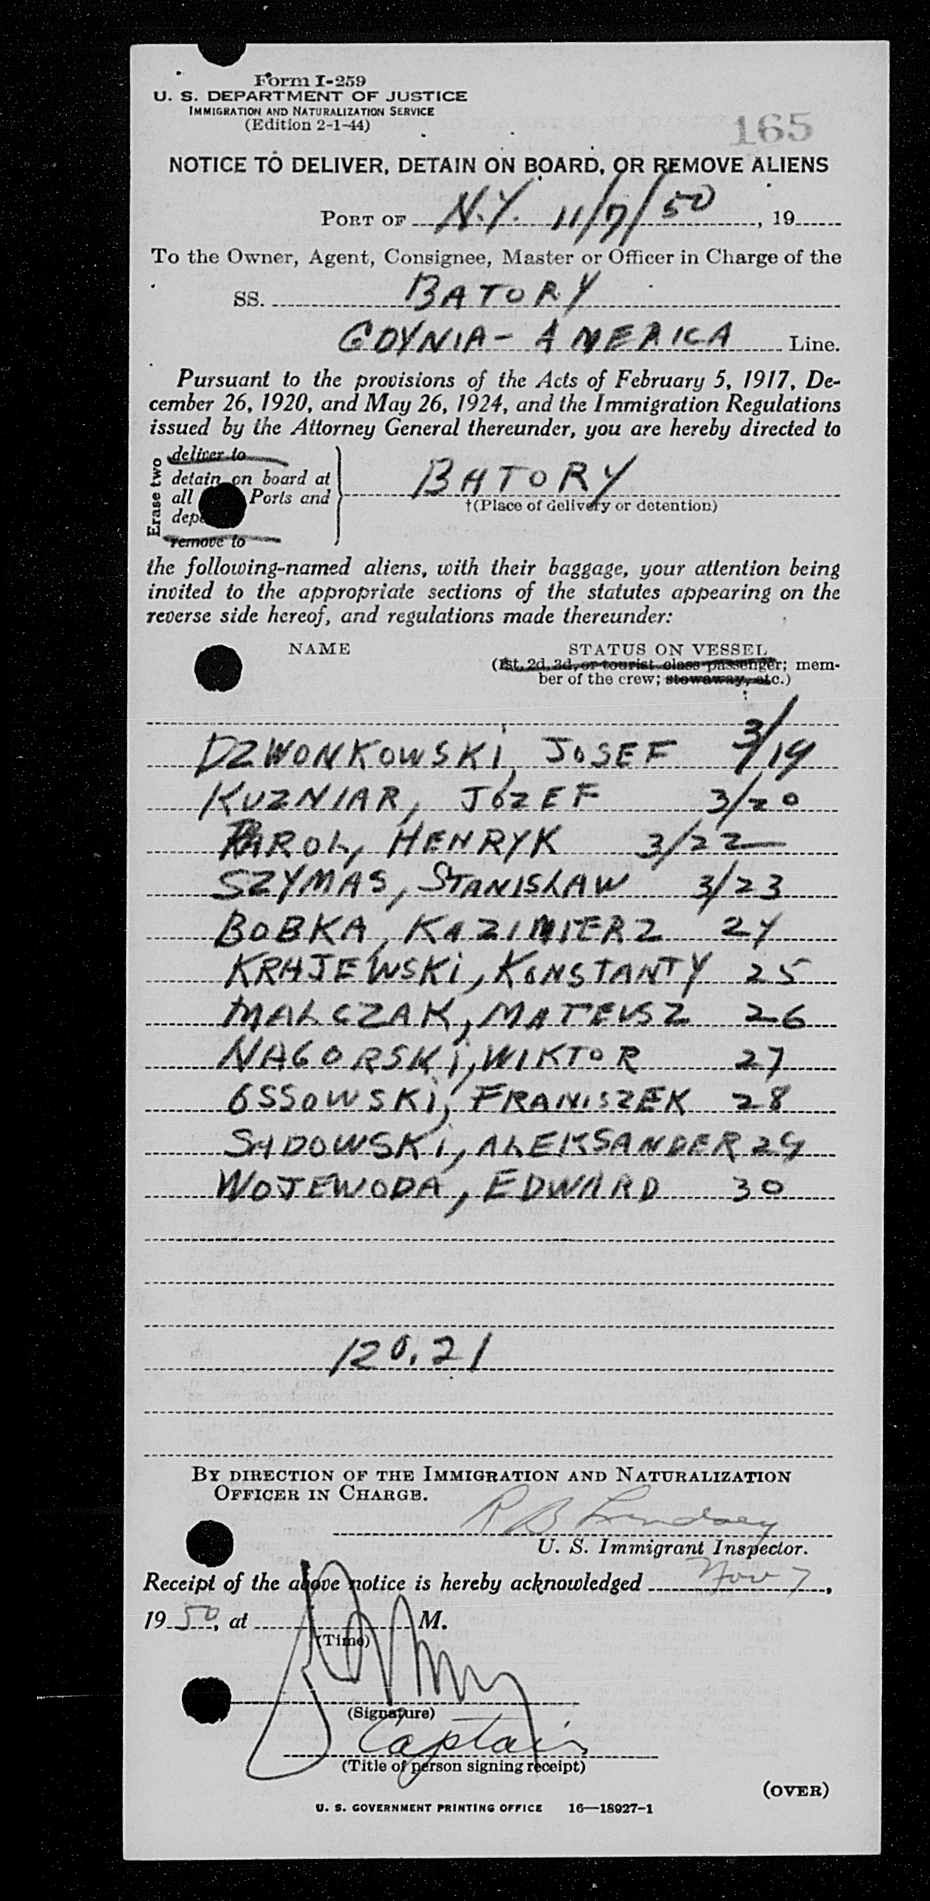 Form I-259
U. S. DEPARTMENT OF JUSTICE
IMMIGRATION AND NATURALIZATION SERVICE
(Edition 2-1-44)
165
NOTICE TO DELIVER, DETAIN ON BOARD, OR REMOVE ALIENS
PORT OF N.Y. 11/7/50, 19
To the Owner, Agent, Consignee, Master or Officer in Charge of the
SS. BATORY
GDYNIA-AMERICA Line.
Pursuant to the provisions of the Acts of February 5, 1917, De-
cember 26, 1920, and May 26, 1924, and the Immigration Regulations
issued by the Attorney General thereunder, you are hereby directed to
Erase two
deliver to
detain on board at
all Ports and
remove to
BATORY
†(Place of delivery or detention)
the following-named aliens, with their baggage, your attention being
invited to the appropriate sections of the statutes appearing on the
reverse side hereof, and regulations made thereunder:
NAME STATUS ON VESSEL
(1st, 2d, 3d, or tourist class passenger; mem-
ber of the crew; stowaway, etc.)
DZWONKOWSKI, JOSEF 3/19
KUZNIAR, JOZEF 3/20
PAROL, HENRYK 3/22
SZYMAS, STANISLAW 3/23
BOBKA, KAZIMIERZ 24
KRAJEWSKI, KONSTANTY 25
MALCZAK, MATEUSZ 26
NAGORSKI, WIKTOR 27
OSSOWSKI, FRANISZEK 28
SADOWSKI, ALEKSANDER 29
WOJEWODA, EDWARD 30
120.21
BY DIRECTION OF THE IMMIGRATION AND NATURALIZATION
OFFICER IN CHARGE.
R B Lindsey
U. S. Immigrant Inspector.
Receipt of the above notice is hereby acknowledged Nov 7,
1950, at M.
(Time)
(Signature)
Captain
(Title of person signing receipt)
(OVER)
U. S. GOVERNMENT PRINTING OFFICE 16—18927-1